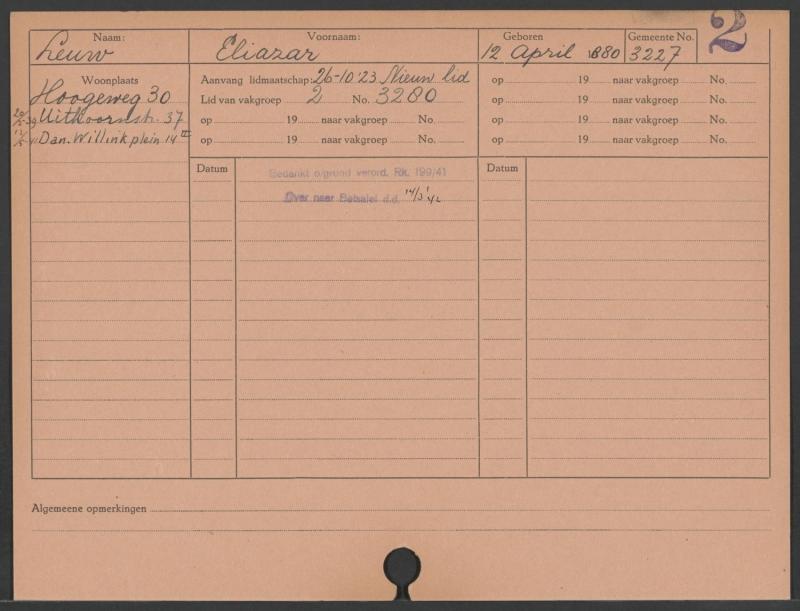 Naam: Voornaam: Geboren Gemeente No. 2
Leuw Eliazar 12 April 1880 3227
Woonplaats
Hoogeweg 30
20/5-39 Uithoornstr. 37
Dan. Willinkplein 14 III
Aanvang lidmaatschap: 26-10'23 Nieuw lid
Lid van vakgroep 2 No. 3280
op 19 naar vakgroep No.
op 19 naar vakgroep No.
op 19 naar vakgroep No.
op 19 naar vakgroep No.
op 19 naar vakgroep No.
op 19 naar vakgroep No.
Datum
Bedankt o/grond verord. Rk. 199/41
Over naar Betsalel d.d. 14/3'42
Datum
Algemeene opmerkingen